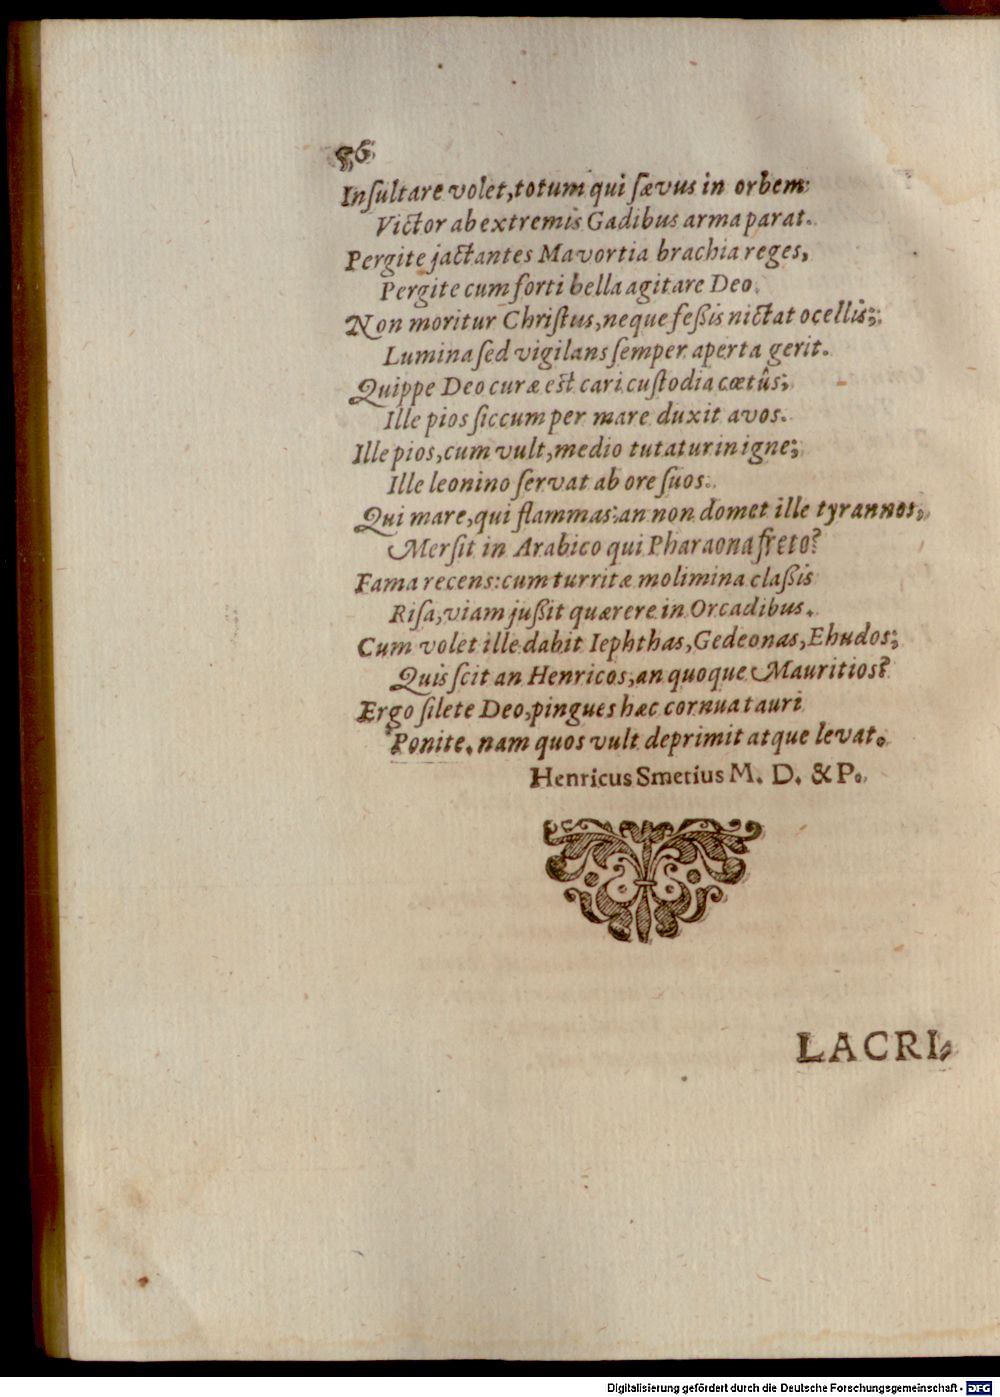 56
Inſultare volet, totum qui ſævus in orbem
Victor ab extremis Gadibus arma parat.
Pergite jactantes Mavortia brachia reges,
Pergite cum forti bella agitare Deo.
Non moritur Chriſtus, neque feßis nictat ocellis;
Lumina ſed vigilans ſemper aperta gerit.
Quippe Deo curæ est cari cuſtodia cœtûs;
Ille pios ſiccum per mare duxit avos.
Ille pios, cum vult, medio tutatur in igne;
Ille leonino ſervat ab ore ſuos.
Qui mare, qui flammas: an non domet ille tyrannos,
Merſit in Arabico qui Pharaona freto?
Fama recens: cum turritæ molimina claßis
Riſa, viam jußit quærere in Orcadibus.
Cum volet ille dabit Iephthas, Gedeonas, Ehudos;
Quis ſcit an Henricos, an quoque Mauritios?
Ergo ſilete Deo, pingues hæc cornua tauri
Ponite. nam quos vult deprimit atque levat.
Henricus Smetius M. D. & P.
LACRI-
Digitalisierung gefördert durch die Deutsche Forschungsgemeinschaft - DFG